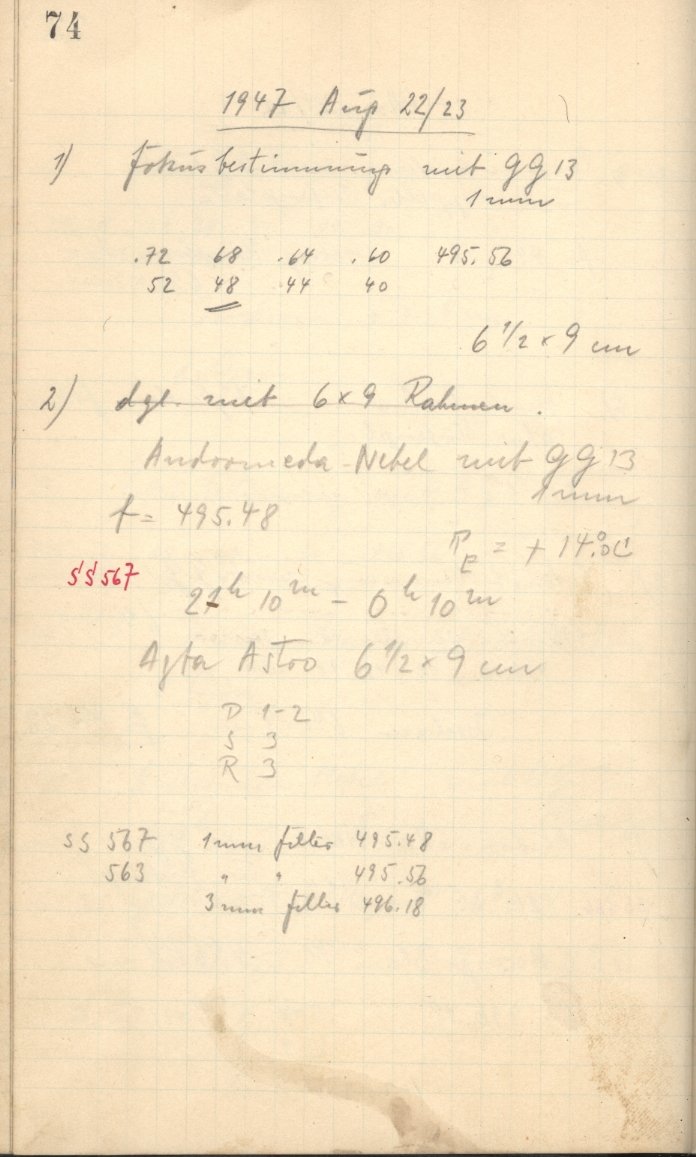 74
1947 Aug 22/23
1) Fokusbestimmung mit GG 13
1 mm
.72 68 .64 .60 495.56
52 48 .44 40
6 1/2 × 9 cm
2) dgl. mit 6×9 Rahmen.
Andromeda-Nebel mit GG 13
1 mm
f = 495.48
T_E = + 14.°0 C
SS 567
21h 10m – 0h 10m
Agfa Astro 6 1/2 × 9 cm
D 1-2
S 3
R 3
SS 567 1 mm Filter 495.48
563 " " 495.56
3 mm Filter 496.18